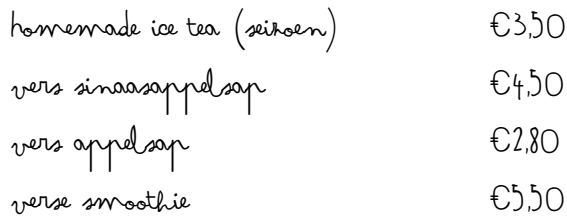 homemade ice tea (seizoen) €3,50
vers sinaasappelsap €4,50
vers appelsap €2,80
verse smoothie €5,50